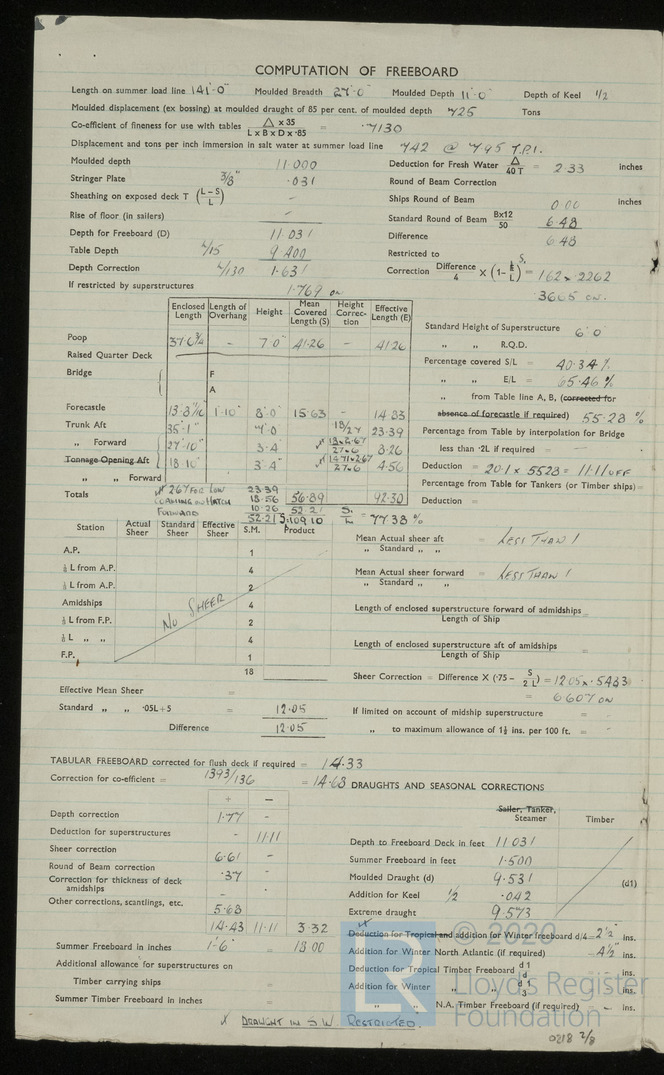 COMPUTATION OF FREEBOARD
Length on summer load line 141'·0" Moulded Breadth 27'·0" Moulded Depth 11'·0" Depth of Keel 1/2
Moulded displacement (ex bossing) at moulded draught of 85 per cent. of moulded depth 725 Tons
Co-efficient of fineness for use with tables △ x 35 / L x B x D x ·85 = ·7130
Displacement and tons per inch immersion in salt water at summer load line 742 @ 7.95 T.P.I.
Moulded depth 11.000 Deduction for Fresh Water △ / 40 T = 2.33 inches
Stringer Plate 3/8" .031 Round of Beam Correction
Sheathing on exposed deck T (L–S / L) – Ships Round of Beam 0.00 inches
Rise of floor (in sailers) – Standard Round of Beam Bx12 / 50 6.48
Depth for Freeboard (D) 11.031 Difference 6.48
Table Depth L/15 9.400 Restricted to
Depth Correction L/130 1.631 Correction Difference / 4 x (1– S, / L) = 1.62 x .2262
If restricted by superstructures 1.769 on .3665 on.
Enclosed Length Length of Overhang Height Mean Covered Length (S) Height Correction Effective Length (E)
Standard Height of Superstructure 6'·0"
Poop 37·6¾ – 7'·0" 41.26 – 41.26 " " R.Q.D.
Raised Quarter Deck
Percentage covered S/L = 40.34%
Bridge F
" " E/L = 65.46%
A
" from Table line A, B, (corrected for
Forecastle 1'·10" 8'·0" 15.63 – 14.33 absence of forecastle if required) 55.23 %
Trunk Aft 35'·1" 7'·0" 18/27 23.39 Percentage from Table by interpolation for Bridge
" Forward 27'·10" 3·4" 27x6 8.26 less than ·2L if required =
Tonnage Opening Aft 18'·10" 3'·4" 27x6 4.56 Deduction = 20.1 x .5523 = 11.11 OFF
" " Forward
Percentage from Table for Tankers (or Timber ships) =
Totals 2.67 FOR LOW COAMING IN HATCH FORWARD 23.39 18.56 10.26 52.21 56.89 52.21 S, 109.10 92.30 Deduction =
S, / L = 77.38 %
Station Actual Sheer Standard Sheer Effective Sheer S.M. Product
Mean Actual sheer aft / " Standard " " = LESS THAN 1
A.P. 1
⅙ L from A.P. 4
Mean Actual sheer forward / " Standard " " = LESS THAN 1
⅓ L from A.P. 2
Amidships NO SHEER 4
Length of enclosed superstructure forward of admidships / Length of Ship =
⅓ L from F.P. 2
⅙ L " " 4
Length of enclosed superstructure aft of amidships / Length of Ship =
F.P. 1
18
Sheer Correction = Difference X (·75 – S / 2 L) = 12.05 x .5483
= 6.607 ON
Effective Mean Sheer =
Standard " " ·05L+5 = 12.05 If limited on account of midship superstructure =
Difference 12.05 " to maximum allowance of 1½ ins. per 100 ft. =
TABULAR FREEBOARD corrected for flush deck if required = 14.33
Correction for co-efficient = 1.393/1.36 = 14.68 DRAUGHTS AND SEASONAL CORRECTIONS
+ –
Sailer, Tanker, Steamer Timber
Depth correction 1.77 –
Deduction for superstructures – 11.11
Depth to Freeboard Deck in feet 11.031
Sheer correction 6.61 –
Summer Freeboard in feet 1.500
Round of Beam correction .37 –
Moulded Draught (d) 9.531 (d1)
Correction for thickness of deck amidships – –
Addition for Keel 1/2 .042
Other corrections, scantlings, etc. 5.68
Extreme draught 9.573
14.43 11.11 3.32
Deduction for Tropical and addition for Winter freeboard d/4= 2½ ins.
Summer Freeboard in inches 1'–6" 18.00
Addition for Winter North Atlantic (if required) – 4½ ins.
Additional allowance for superstructures on
Deduction for Tropical Timber Freeboard d1 / d = ins.
Timber carrying ships =
Addition for Winter " " d1 / 3 = ins.
Summer Timber Freeboard in inches =
" " N.A. Timber Freeboard (if required) – ins.
DRAUGHT IN S.W. RESTRICTED.
© 2020
Lloyd's Register
Foundation
LR
0218 2/3